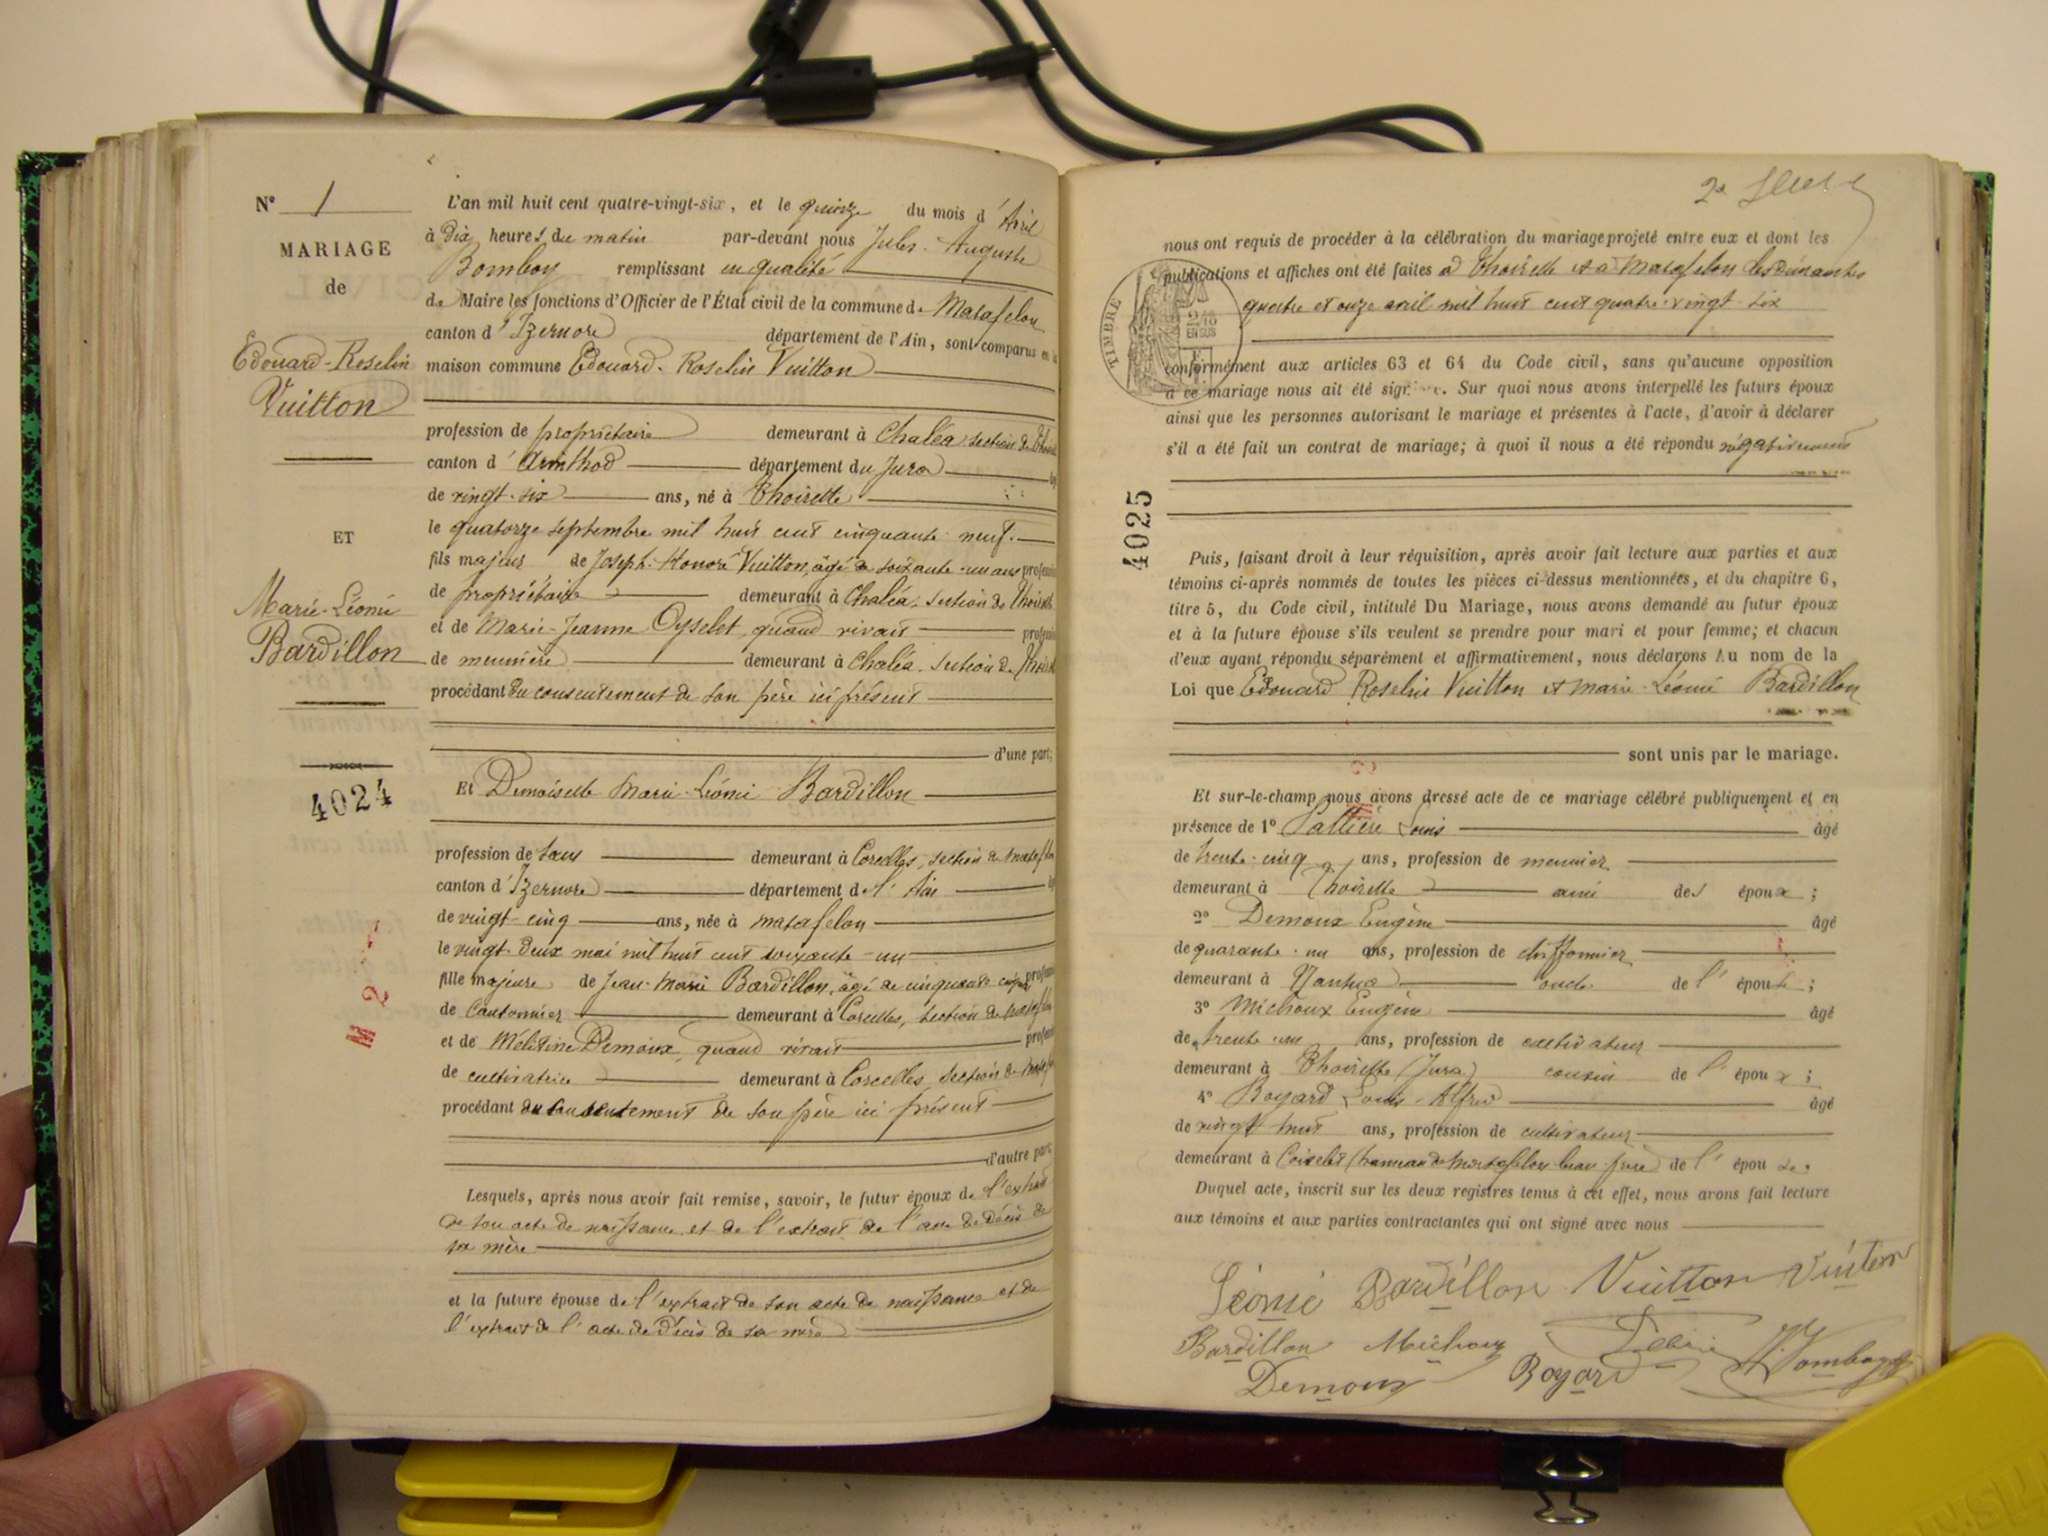 N° 1
MARIAGE
de
Edouard-Roselin
Vuitton
ET
Marie-Léonie
Bardillon
4024
M 2
L'an mil huit cent quatre-vingt-six, et le quinze du mois d'Avril
à Dix heures du matin par-devant nous Jules-Auguste
Bomboy remplissant en qualité
de Maire les fonctions d'Officier de l'État civil de la commune de Matafelon
canton d'Izernore département de l'Ain, sont comparus en la
maison commune Edouard-Roselin Vuitton
profession de propriétaire demeurant à Chaléa section de Thoirette
canton d'Arinthod département du Jura
de vingt-six ans, né à Thoirette
le quatorze septembre mil huit cent cinquante neuf.
fils majeur de Joseph-Honoré Vuitton, âgé de soixante-un ans profession
de propriétaire demeurant à Chaléa, section de Thoirette
et de Marie-Jeanne Oyselet, quand vivait profession
de meunière demeurant à Chaléa, section de Thoirette
procédant du consentement de son père ici présent
d'une part;
Et Demoiselle Marie-Léonie Bardillon
profession de sans demeurant à Corcelles, section de Matafelon
canton d'Izernore département de l'Ain
de vingt-cinq ans, née à Matafelon
le vingt-deux mai mil huit cent soixante-un
fille majeure de Jean-Marie Bardillon, âgé de cinquante cinq ans profession
de Cantonnier demeurant à Corcelles, section de Matafelon
et de Mélitine Demoux, quand vivait profession
de cultivatrice demeurant à Corcelles, section de Matafelon
procédant du consentement de son père ici présent
d'autre part;
Lesquels, après nous avoir fait remise, savoir, le futur époux de l'extrait
de son acte de naissance et de l'extrait de l'acte de Décès de
sa mère
et la future épouse de l'extrait de son acte de naissance et de
l'extrait de l'acte de Décès de sa mère
TIMBRE
EN SUS
4025
nous ont requis de procéder à la célébration du mariage projeté entre eux et dont les
publications et affiches ont été faites à Thoirette et à Matafelon les dimanches
quatre et onze avril mil huit cent quatre-vingt-six
conformément aux articles 63 et 64 du Code civil, sans qu'aucune opposition
à ce mariage nous ait été signifiée. Sur quoi nous avons interpellé les futurs époux
ainsi que les personnes autorisant le mariage et présentes à l'acte, d'avoir à déclarer
s'il a été fait un contrat de mariage; à quoi il nous a été répondu négativement
Puis, faisant droit à leur réquisition, après avoir fait lecture aux parties et aux
témoins ci-après nommés de toutes les pièces ci-dessus mentionnées, et du chapitre 6,
titre 5, du Code civil, intitulé Du Mariage, nous avons demandé au futur époux
et à la future épouse s'ils veulent se prendre pour mari et pour femme; et chacun
d'eux ayant répondu séparément et affirmativement, nous déclarons Au nom de la
Loi que Edouard Roselin Vuitton et Marie-Léonie Bardillon
sont unis par le mariage.
Et sur-le-champ nous avons dressé acte de ce mariage célébré publiquement et en
présence de 1° Pallière Louis âgé
de trente-cinq ans, profession de meunier
demeurant à Thoirette ami des époux;
2° Demoux Eugène âgé
de quarante-un ans, profession de chiffonnier
demeurant à Nantua oncle de l'épouse;
3° Michoux Eugène âgé
de trente-un ans, profession de cultivateur
demeurant à Thoirette (Jura) cousin de l'époux;
4° Boyard Louis-Alfred âgé
de vingt-huit ans, profession de cultivateur
demeurant à Coiselet (hameau de Matafelon beau-frère de l'épouse.
Duquel acte, inscrit sur les deux registres tenus à cet effet, nous avons fait lecture
aux témoins et aux parties contractantes qui ont signé avec nous
Léonie Bardillon Vuitton Vuitton
Bardillon Michoux
Demoux Boyard Bomboy